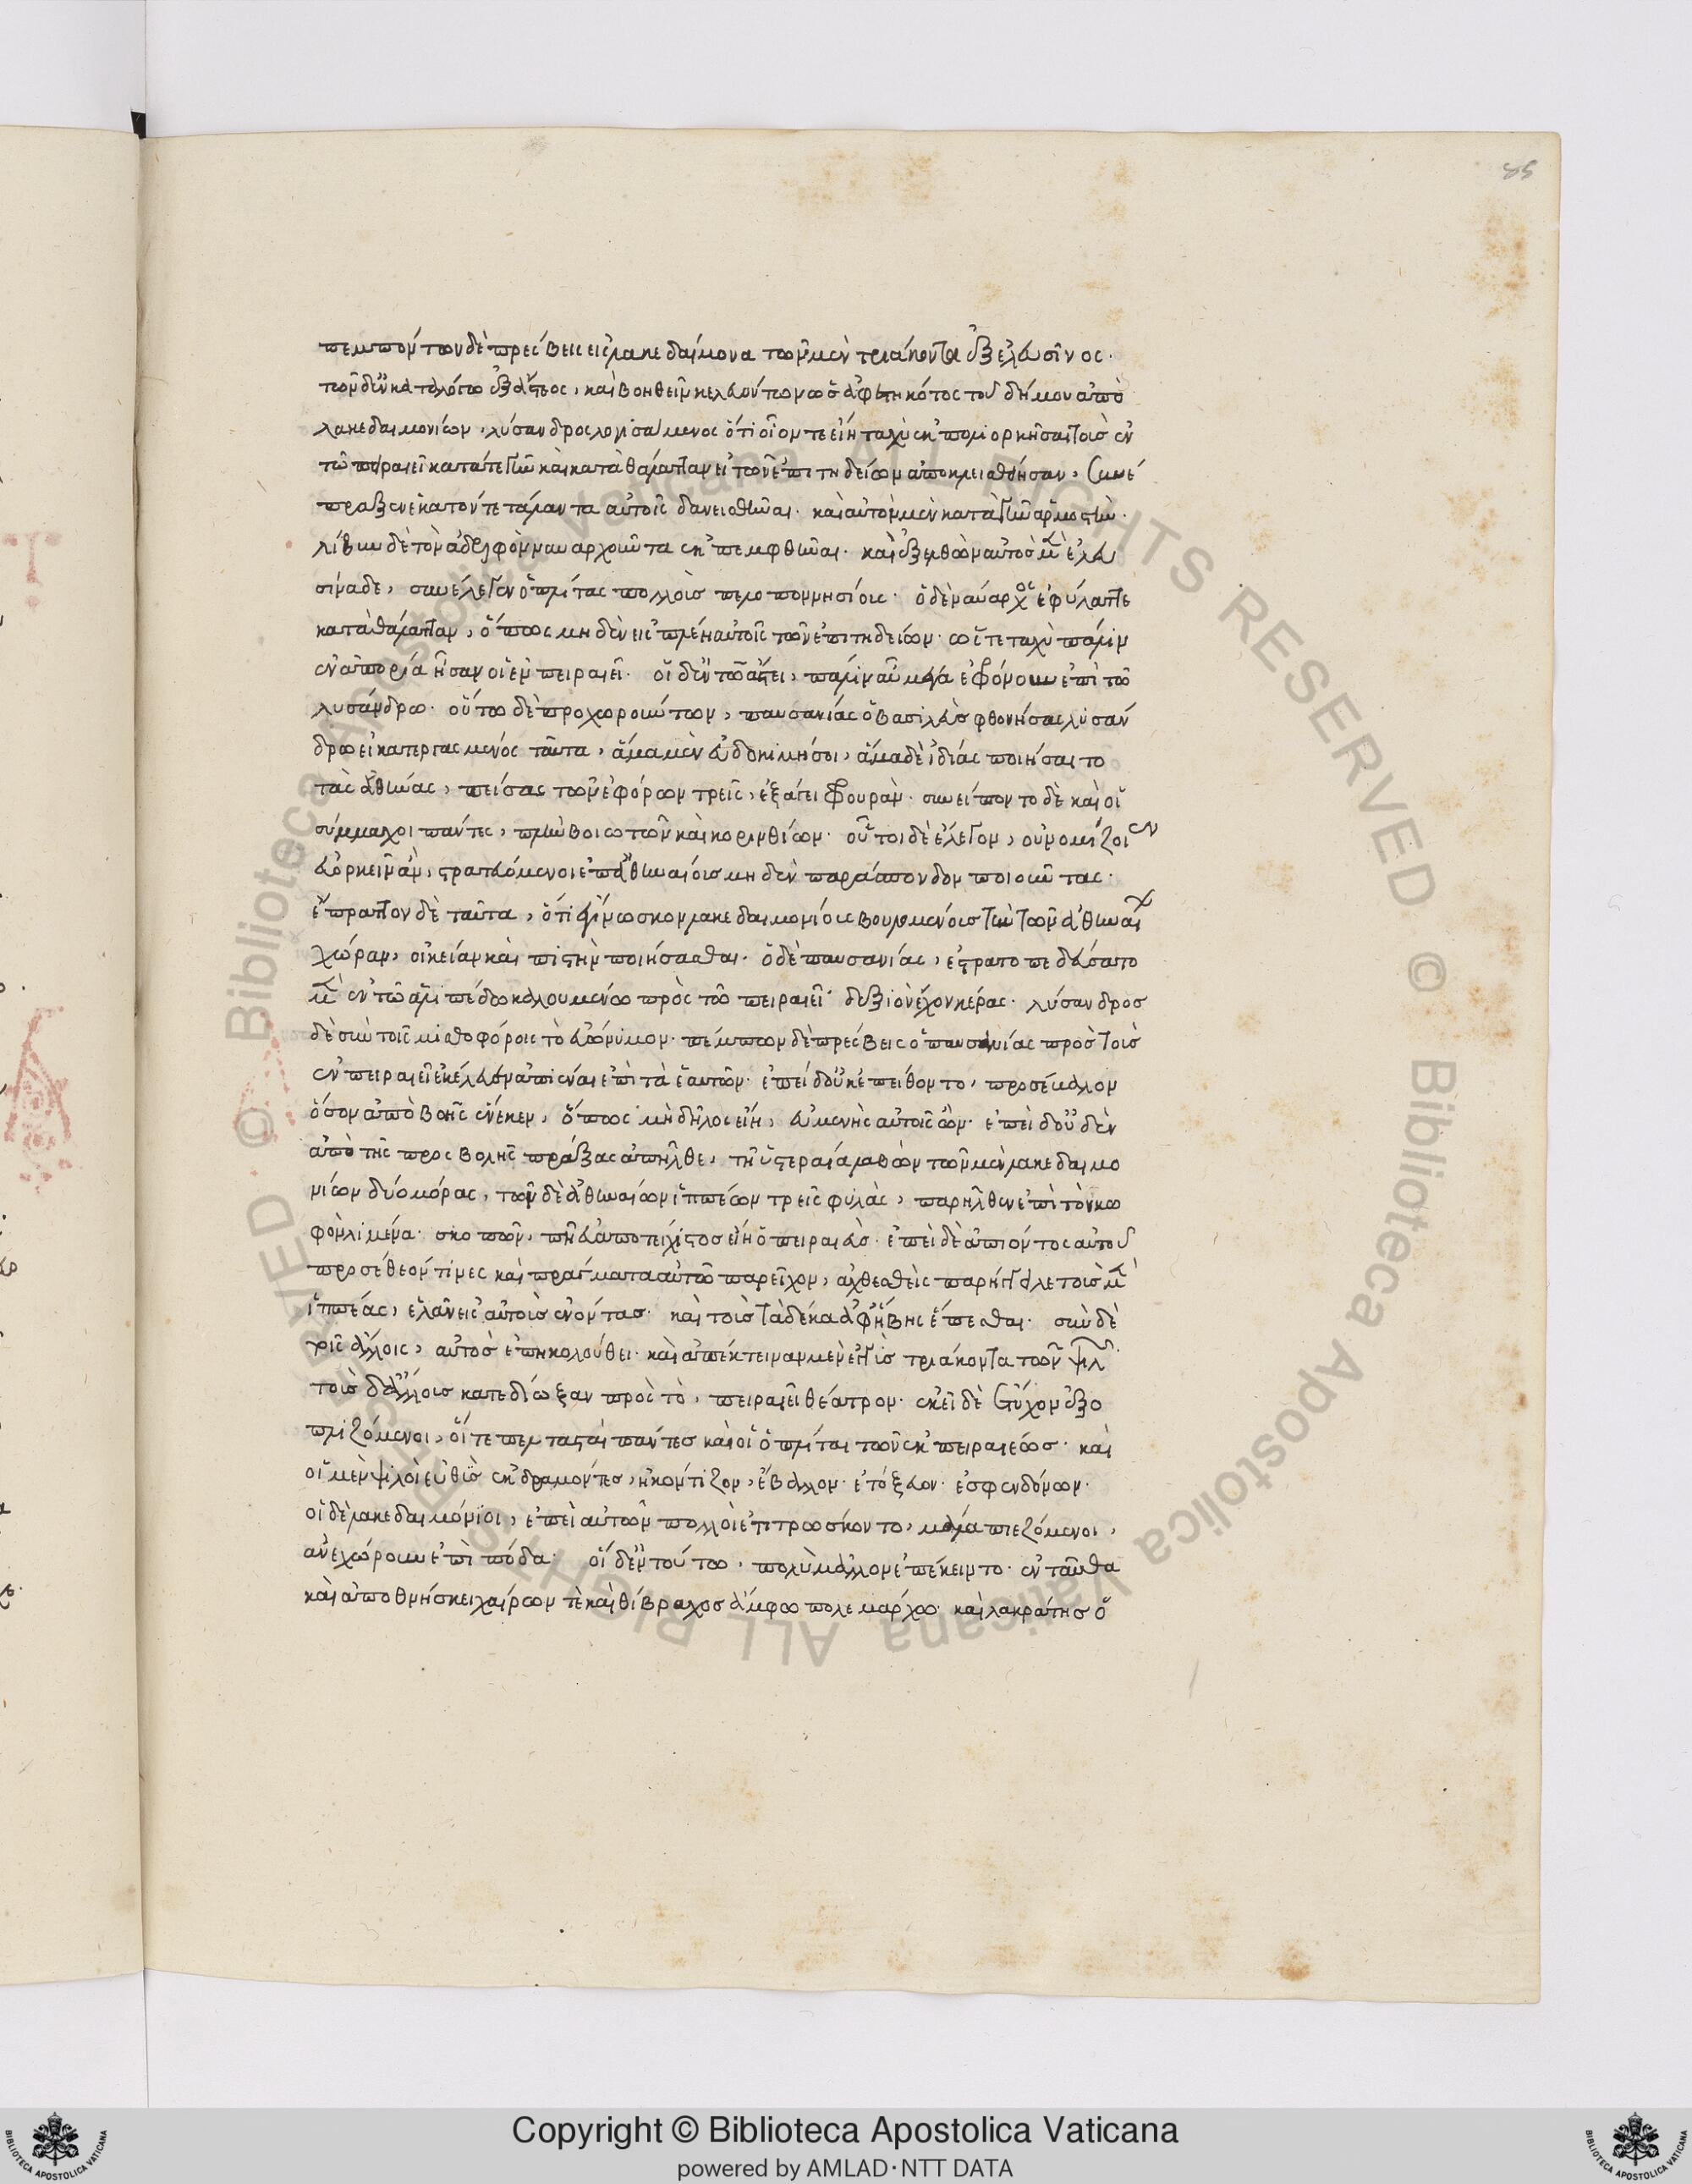 πεμπόντων δὲ πρέσβεις εἰς λακεδαίμονα τῶν μὲν τριάκοντα ἐξ ἐλευσῖνος.
τῶν δ' ἐν καταλόγω ἐξ ἄστεος, καὶ βοηθεῖν κελευόντων ὡς ἀφεστηκότος τοῦ δήμου ἀπὸ
λακεδαιμονίων, λύσανδρος λογισάμενος ὅτι οἷον τε εἴη ταχὺ ἐκπολιορκῆσαι τοὺς ἐν
τῶ πειραιεῖ κατά τε γῆν καὶ κατὰ θάλατταν εἰ τῶν ἐπιτηδείων ἀποκλεισθείησαν, συνέ
πραξεν ἑκατόν τε τάλαντα αὐτοῖς δανεισθῆναι. καὶ αὐτὸν μὲν κατὰ γῆν ἁρμοστὴν.
λίβυν δὲ τὸν ἀδελφὸν ναυαρχοῦντα ἐκπεμφθῆναι. καὶ ἐξελθὼν αὐτὸς μὲν ἐλευ
σίναδε, συνέλεγεν ὁπλίτας πολλοὺς πελοποννησίους. ὁ δὲ ναύαρχος ἐφύλαττε
κατὰ θάλατταν, ὅπως μηδὲν εἰσπλέη αὐτοῖς τῶν ἐπιτηδείων. ὥστε ταχὺ πάλιν
ἐν ἀπορία ἦσαν οἱ ἐν πειραιεῖ. οἱ δ' ἐν τῶ ἄστει, πάλιν αὖ μέγα ἐφρόνουν ἐπὶ τῶ
λυσάνδρω. οὕτω δὲ προχωρούντων, παυσανίας ὁ βασιλεὺς φθονήσας λυσάν
δρω εἰ κατεργασμένος ταῦτα, ἅμα μὲν εὐδοκιμήσοι, ἅμα δὲ ἰδίας ποιήσαιτο
τὰς ἀθήνας, πείσας τῶν ἐφόρων τρεῖς, ἐξάγει φρουρὰν. συνείποντο δὲ καὶ οἱ
σύμμαχοι πάντες, πλὴν βοιωτῶν καὶ κορινθίων. οὗτοι δὲ ἔλεγον, οὐ νομίζοιεν
εὐορκεῖν ἂν, στρατευόμενοι ἐπ' ἀθηναίους μηδὲν παράσπονδον ποιοῦντας.
ἔπραττον δὲ ταῦτα, ὅτι ἐγίνωσκον λακεδαιμονίους βουλομένους τὴν τῶν ἀθηναίων
χώραν, οἰκείαν καὶ πιστὴν ποιήσασθαι. ὁ δὲ παυσανίας, ἐστρατοπεδεύσατο
μὲν ἐν τῶ ἁλιπέδω καλουμένω πρὸς τῶ πειραιεῖ δεξιὸν ἔχον κέρας. λύσανδρος
δὲ σὺν τοῖς μισθοφόροις τὸ εὐώνυμον. πέμπων δὲ πρέσβεις ὁ παυσανίας πρὸς τοὺς
ἐν πειραιεῖ ἐκέλευεν ἀπιέναι ἐπὶ τὰ ἑαυτῶν. ἐπεὶ δ' οὐκ ἐπείθοντο, προσέβαλλον
ὅσον ἀπὸ βοῆς ἕνεκεν, ὅπως μὴ δῆλος εἴη, εὐμενὴς αὐτοῖς ὢν. ἐπεὶ δ' οὐδὲν
ἀπὸ τῆς προσβολῆς πράξας ἀπῆλθε, τῆ ὑστεραία λαβὼν τῶν μὲν λακεδαιμο
νίων δύο μόρας, τῶν δὲ ἀθηναίων ἱππέων τρεῖς φυλὰς, παρῆλθεν ἐπὶ τὸν κω
φὸν λιμένα. σκοπῶν, πῆ εὐαποτείχιστος εἴη ὁ πειραιεὺς. ἐπεὶ δὲ ἀπιόντος αὐτοῦ
προσέθεόν τινες καὶ πράγματα αὐτῶ παρεῖχον, ἀχθεσθεὶς παρήγγειλε τοὺς μὲν
ἱππέας, ἐλᾶν εἰς αὐτοὺς ἐνόντας. καὶ τοὺς τὰ δέκα ἀφ' ἥβης ἕπεσθαι. σὺν δὲ
τοῖς ἄλλοις, αὐτὸς ἐπηκολούθει. καὶ ἀπέκτειναν μὲν ἐγγὺς τριάκοντα τῶν ψιλῶν.
τοὺς δ' ἄλλους κατεδίωξαν πρὸς τὸ, πειραιεῖ θέατρον. ἐκεῖ δὲ ἔτυχον ἐξο
πλιζόμενοι, οἵ τε πελτασταὶ πάντες καὶ οἱ ὁπλίται τῶν ἐκ πειραιέως. καὶ
οἱ μὲν ψιλοὶ εὐθὺς ἐκδραμόντες, ἠκόντιζον, ἔβαλλον. ἐτόξευον. ἐσφενδόνων.
οἱ δὲ λακεδαιμόνιοι, ἐπεὶ αὐτῶν πολλοὶ ἐτιτρώσκοντο, μάλα πιεζόμενοι,
ἀνεχώρουν ἐπὶ πόδα. οἱ δ' ἐν τούτω, πολὺ μᾶλλον ἐπέκειντο. ἐνταῦθα
καὶ ἀποθνήσκει χαίρων τὲ καὶ θίβραχος ἄμφω πολεμάρχω. καὶ λακράτης ὁ
85
Copyright © Biblioteca Apostolica Vaticana
powered by AMLAD·NTT DATA